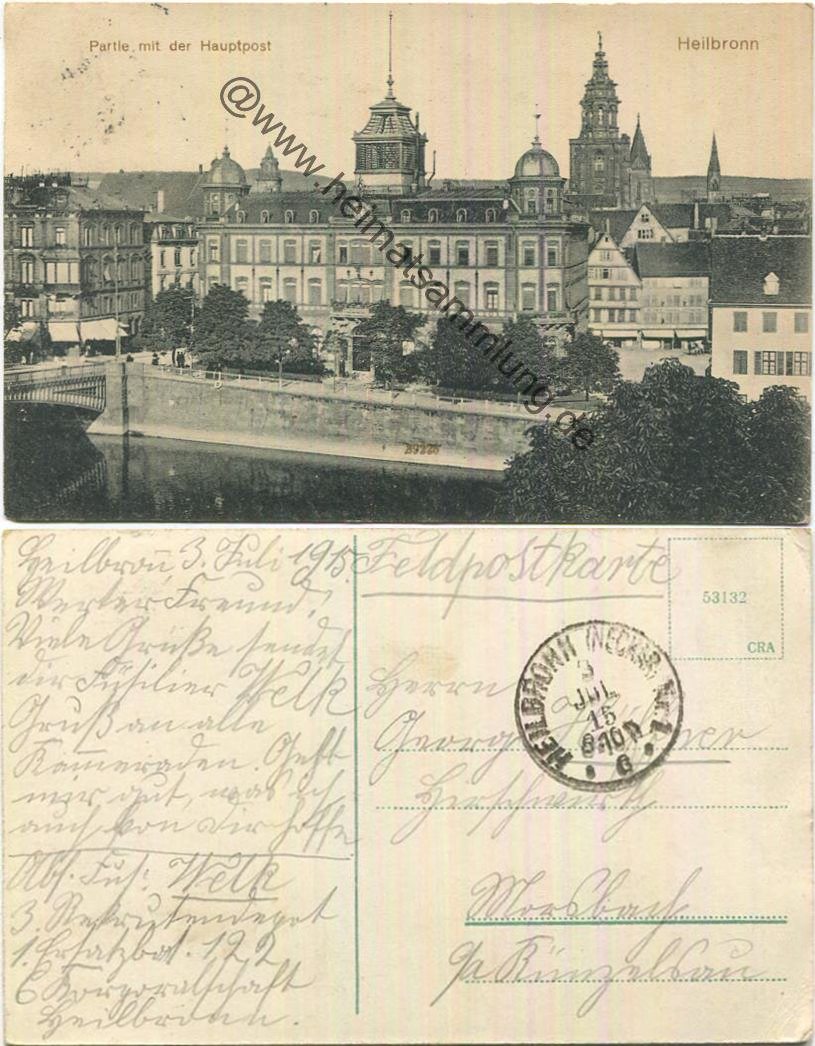 Partie mit der Hauptpost
Heilbronn
@www.heimatsammlung.de
29226
Heilbron̄ 3. Juli 1915.
Werter Freund!
Viele Grüße sendet
dir Füsilier Welk
Gruß an alle
Kameraden. Geht
mir gut, was ich
auch von Dir hoffe
Abs. Fus: Welk
3. Rekrutendepot
1. Ersatzbat. 122
6 Korporalschaft
Heilbronn.
Feldpostkarte
53132
CRA
HEILBRONN (NECKAR) Nr. 1
3
JUL
15
8-10 N
* G *
Herrn
Georg
Morsbach
Künzelsau